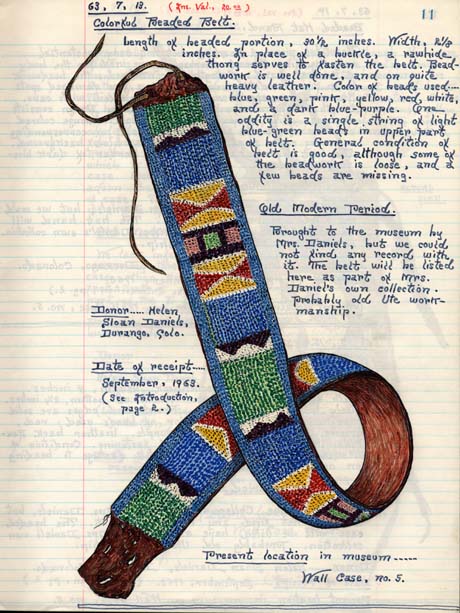 63, 7, 13. (Ins. Val., 20.00)
11
Colorful Beaded Belt.
Length of beaded portion, 30½ inches. Width, 2⅛
inches. In place of a buckle, a rawhide
thong serves to fasten the belt. Bead-
work is well done, and on quite
heavy leather. Color of beads used....
blue, green, pink, yellow, red, white,
and a dark blue-purple. One
oddity is a single string of light
blue-green beads in upper part
of belt. General condition of
belt is good, although some of
the beadwork is loose, and a
few beads are missing.
Old Modern Period.
Brought to the museum by
Mrs. Daniels, but we could
not find any record with
it. The belt will be listed
here as part of Mrs.
Daniel's own collection.
Probably old Ute work-
manship.
Donor..... Helen
Sloan Daniels,
Durango, Colo.
Date of receipt....
September, 1963.
(See Introduction,
page 2.)
Present location in museum-----
Wall Case, no. 5.